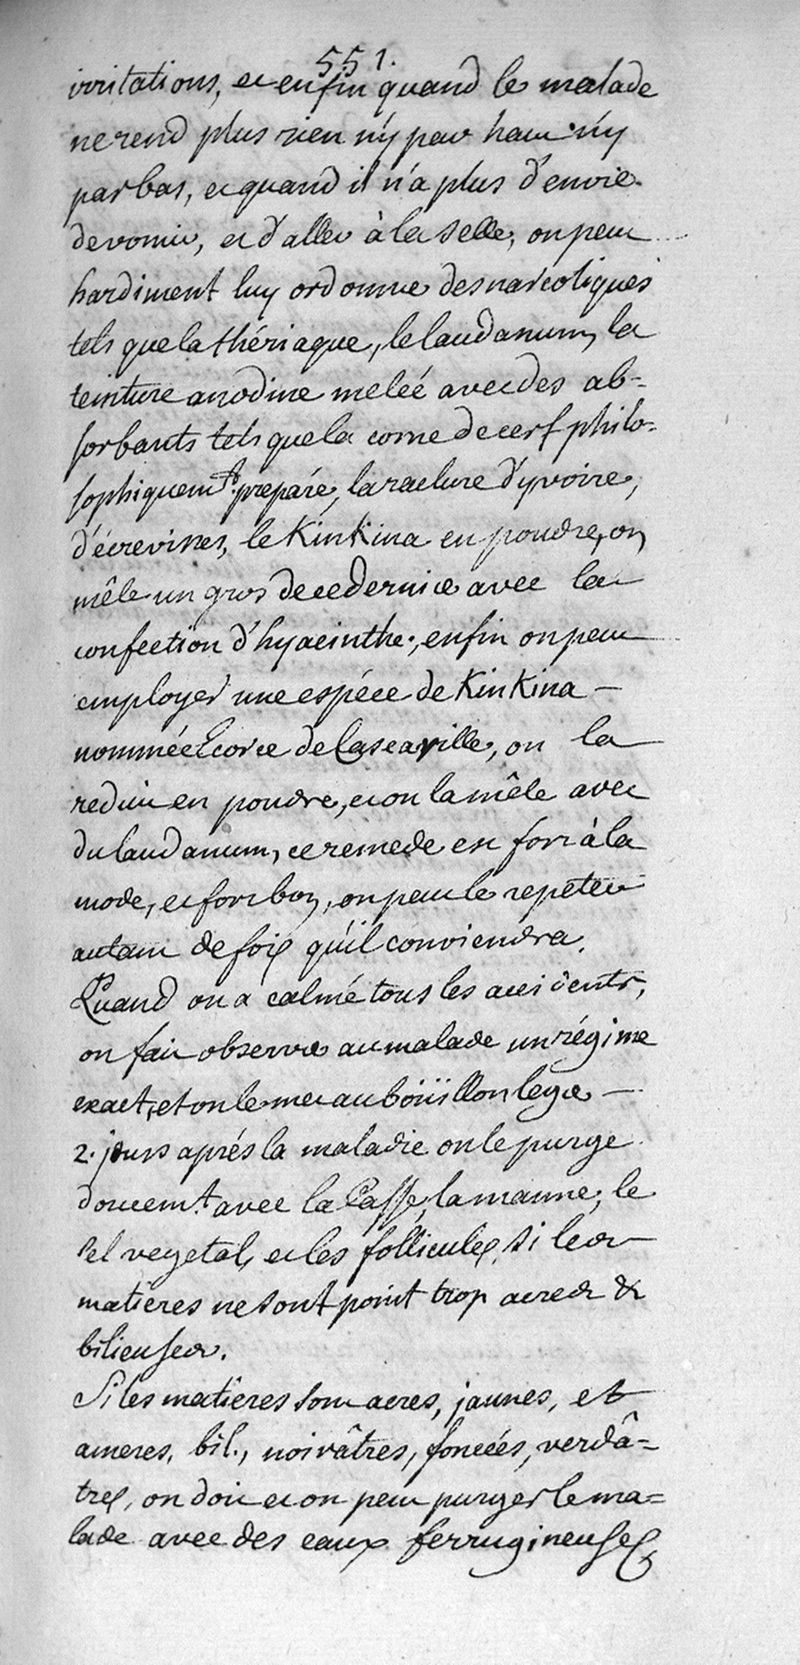 551.
irritations, et enfin quand le malade
ne rend plus rien n'y par haut n'y
par bas, et quand il n'a plus d'envie
de vomir, et d'aller à la selle, on peut
hardiment luy ordonner des narcotiques
tels que la thériaque, le laudanum, la
teinture anodine melée avec des ab-
sorbants tels que la corne de cerf philo-
sophiquemt. preparé, la raclure d'yvoire,
d'écrevisses, le KinKina en poudre, on
mêle un gros de ce dernier avec la
confection d'hyacinthe., enfin on peut
employer une espéce de KinKina -
nommée Ecorce de Cascarille, on la
reduit en poudre, et on la mêle avec
du laudanum, ce remede est fort à la
mode, et fort bon, on peut le repeter
autant de fois qu'il conviendra.
Quand on a calmé tous les accidents,
on fait observer au malade un régime
exact, et on le met au boüillon leger -
2. jours aprés la maladie on le purge
doucemt. avec la Casse, la manne, le
sel vegetal, et les follicules, si les
matières ne sont point trop acres &
bilieuses.
Si les matieres sont acres, jaunes, et
ameres, bil., noirâtres, foncées, verdâ=
tres, on doit et on peut purger le ma=
lade avec des eaux ferrugineuses,